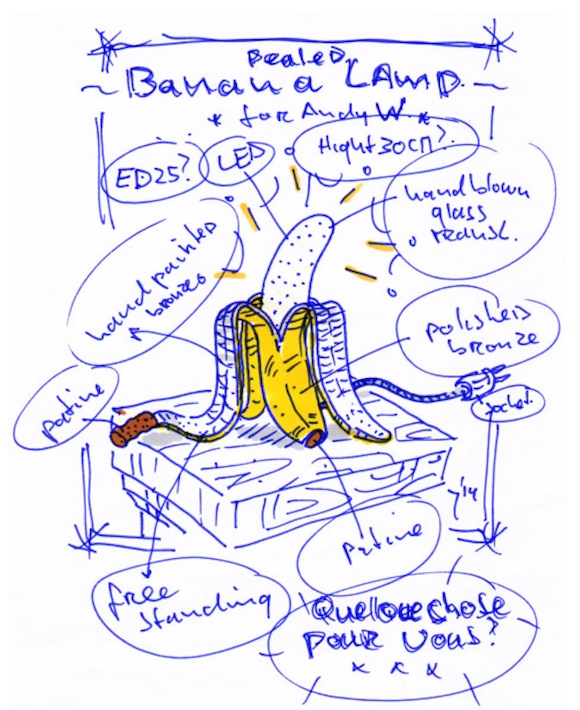 Pealed
~ Banana LAmp. ~
* for Andy W. *
ED25?
LED
Hight 30cm?
handblown
glass
handpainted
bronze
polished
bronze
patine
socket
'14
patine
free
standing
Quelque chose
pour vous?
* * *